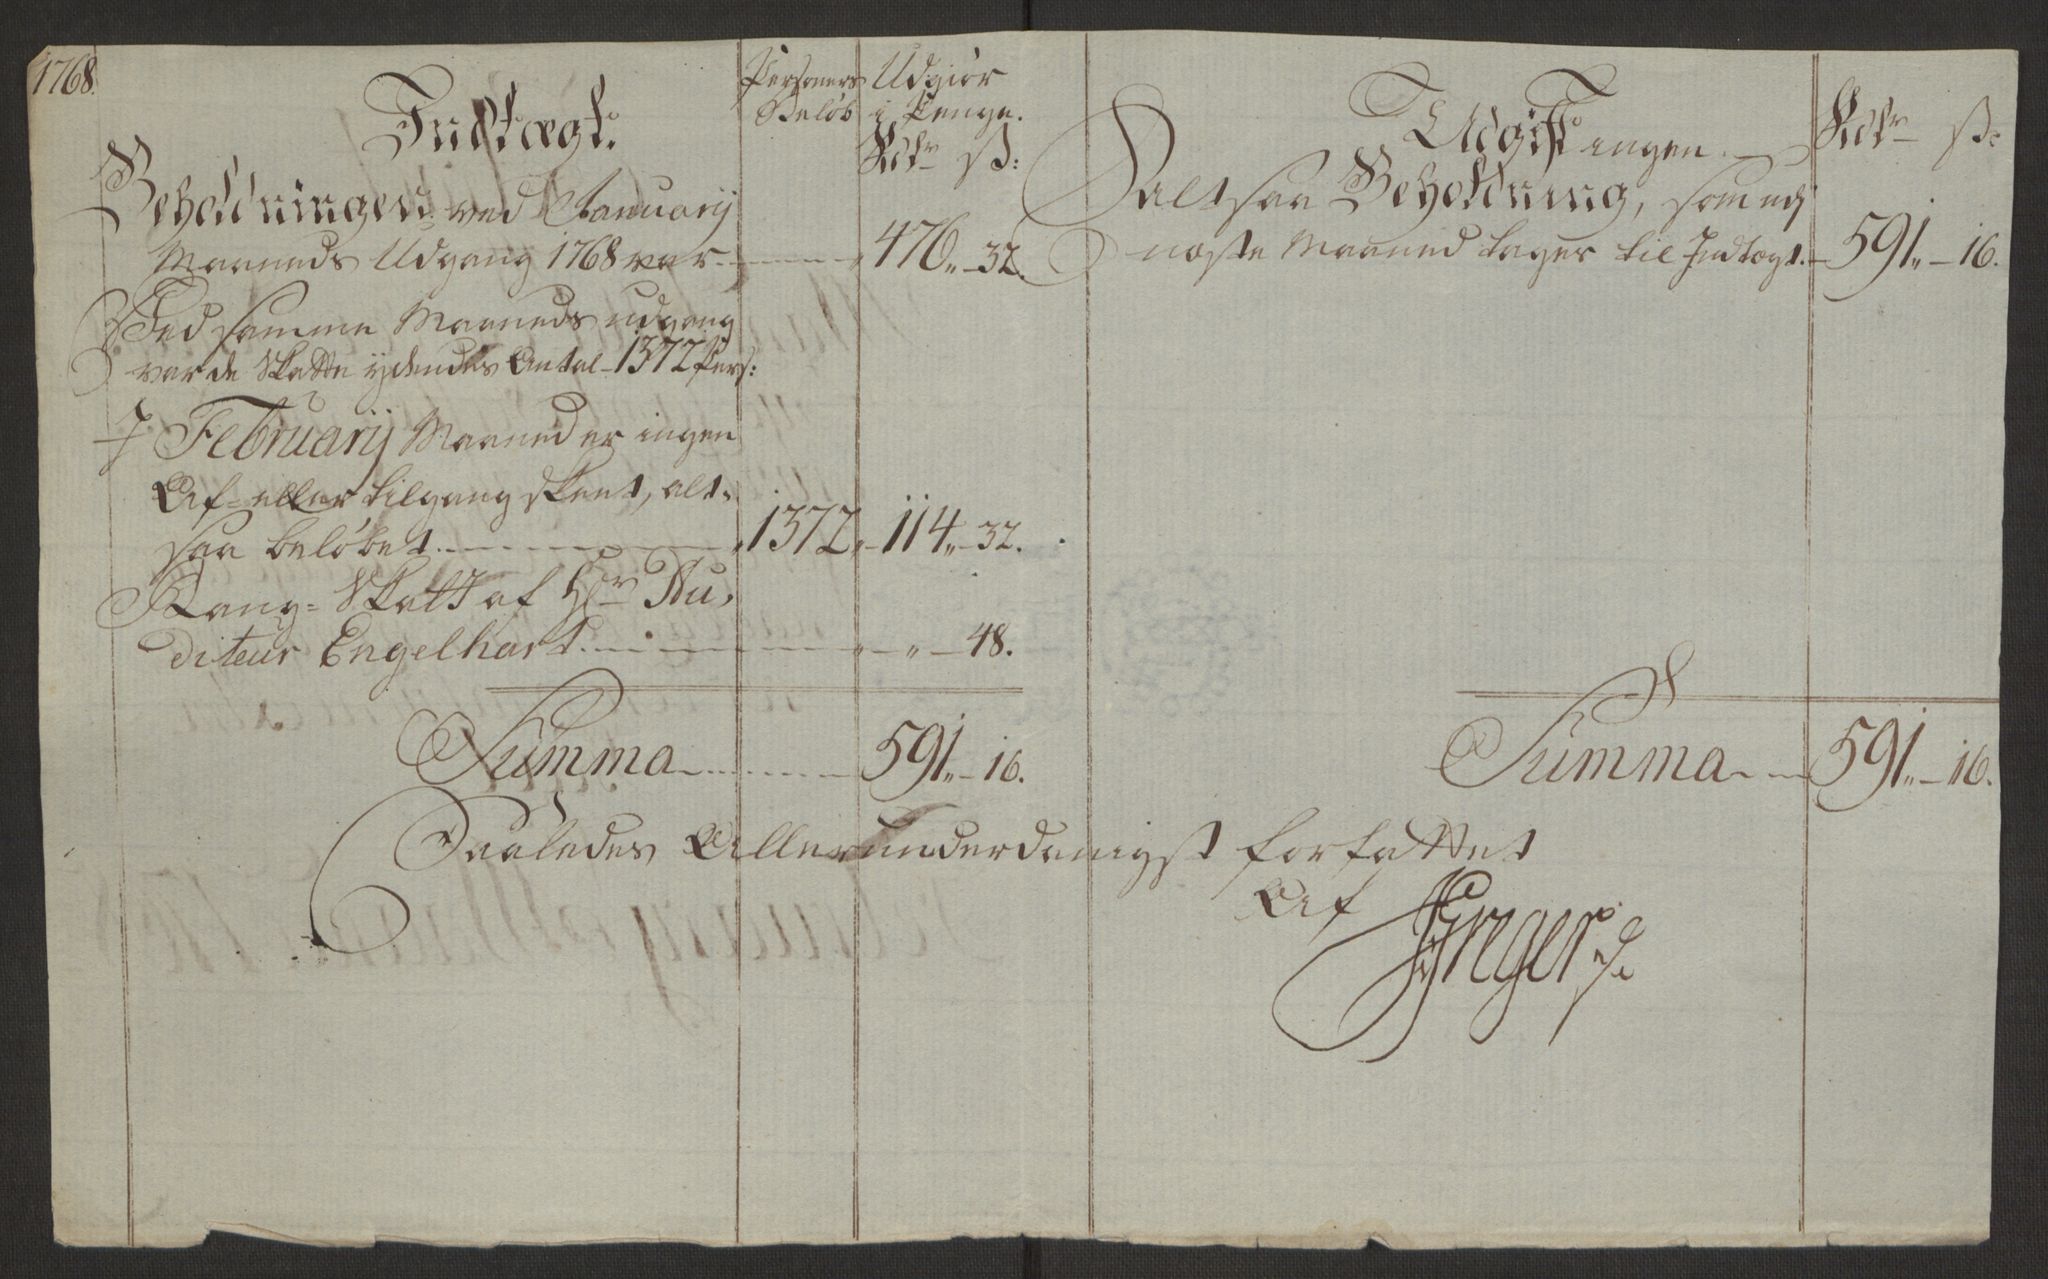 1768.
Indtægt.
Personers Beløb
Udgiør i Penge.
Rdr ß:
Beholdningen ved Januarij
Maaneds Udgang 1768 var 476,, 32.
Ved samme Maaneds udgang
var de Skatte ydendes Antal 1372 Pers:
I Februarij Maaned er ingen
Af- eller tilgang skeet, alt-
saa beløbet 1372,, 114,, 32.
Rang-Skatt af Hr Au-
diteur Engelhart ,, ,, 48.
Summa 591,, 16.
Udgift ingen.
Rdr ß:
altsaa Beholdning, som udj
næste Maaned tages til Indtægt. 591,, 16.
Summa 591,, 16.
Saaledes Allerunderdanigst forfattet
Af